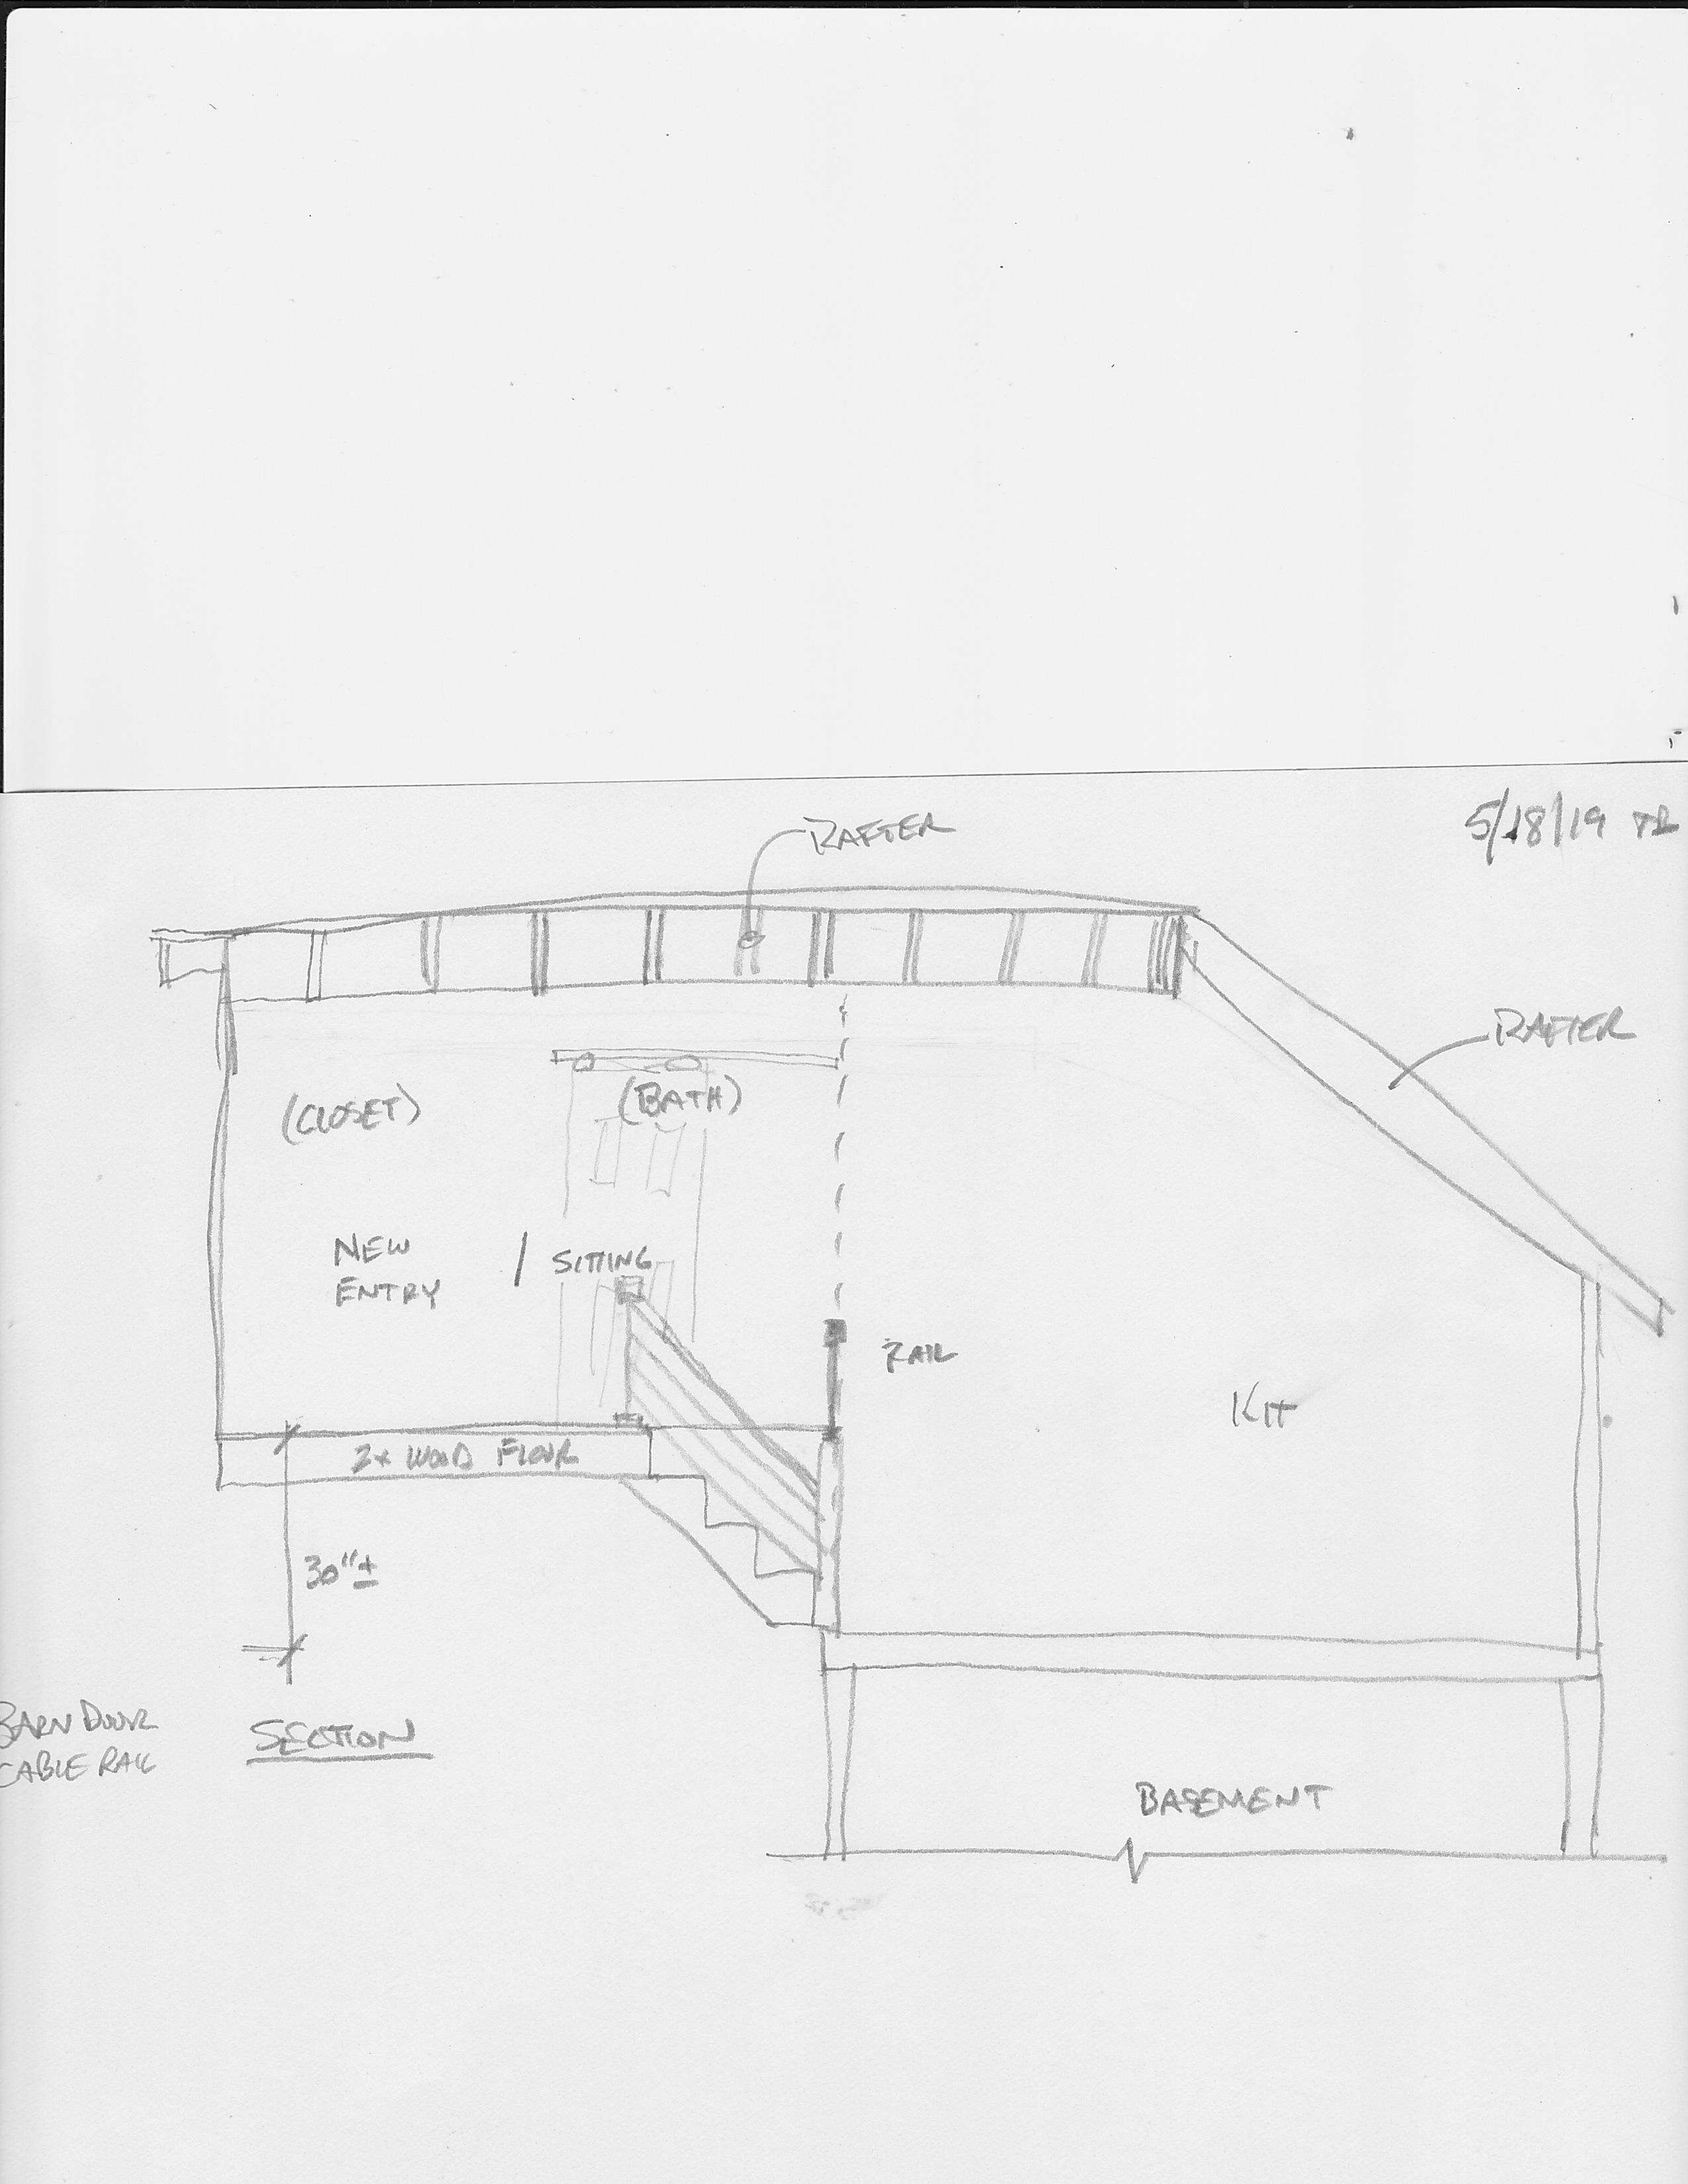 5/18/19 TR
RAFTER
RAFTER
(CLOSET)
(BATH)
NEW
ENTRY / SITTING
RAIL
KIT
2x WOOD FLOOR
30"±
BARN DOOR
CABLE RAIL
SECTION
BASEMENT